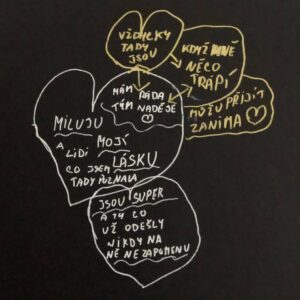 VŽDYCKY
TADY
JSOU
KDYŽ MNĚ
NĚCO
TRÁPÍ
MŮŽU PŘIJÍT
ZANIMA
MÁM RÁDA
TÝM NADĚJE
MILUJU
MOJÍ
LÁSKU
A
LIDI
CO JSEM
TADY POZNALA
JSOU SUPER
A TY CO
UŽ ODEŠLY
NIKDY NA
NĚ NEZAPOMENU